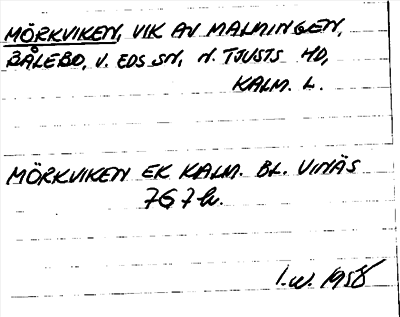 MÖRKVIKEN, VIK AV MALMINGEN,
BÅLEBO, V. EDS SN, N. TJUSTS HD,
KALM. L.
MÖRKVIKEN EK KALM. BL. VINÄS
767 h.
I.W. 1958